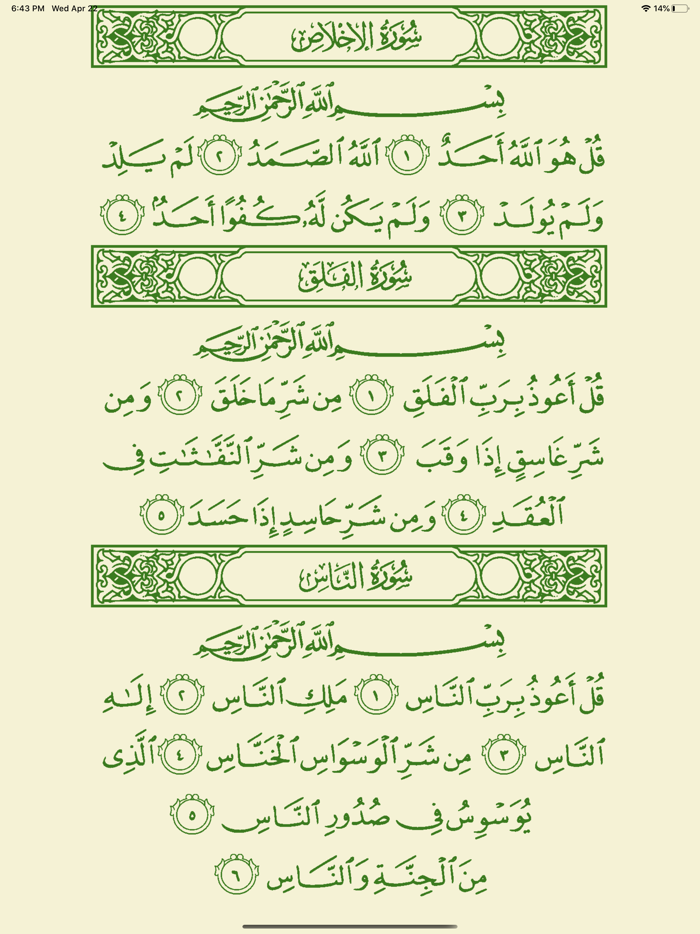 6:43 PM Wed Apr 22
14%
سُورَةُ الإِخْلَاصِ
بِسْمِ ٱللَّهِ ٱلرَّحْمَٰنِ ٱلرَّحِيمِ
قُلْ هُوَ ٱللَّهُ أَحَدٌ ١ ٱللَّهُ ٱلصَّمَدُ ٢ لَمْ يَلِدْ
وَلَمْ يُولَدْ ٣ وَلَمْ يَكُن لَّهُۥ كُفُوًا أَحَدٌۢ ٤
سُورَةُ الفَلَقِ
بِسْمِ ٱللَّهِ ٱلرَّحْمَٰنِ ٱلرَّحِيمِ
قُلْ أَعُوذُ بِرَبِّ ٱلْفَلَقِ ١ مِن شَرِّ مَا خَلَقَ ٢ وَمِن
شَرِّ غَاسِقٍ إِذَا وَقَبَ ٣ وَمِن شَرِّ ٱلنَّفَّٰثَٰتِ فِى
ٱلْعُقَدِ ٤ وَمِن شَرِّ حَاسِدٍ إِذَا حَسَدَ ٥
سُورَةُ النَّاسِ
بِسْمِ ٱللَّهِ ٱلرَّحْمَٰنِ ٱلرَّحِيمِ
قُلْ أَعُوذُ بِرَبِّ ٱلنَّاسِ ١ مَلِكِ ٱلنَّاسِ ٢ إِلَٰهِ
ٱلنَّاسِ ٣ مِن شَرِّ ٱلْوَسْوَاسِ ٱلْخَنَّاسِ ٤ ٱلَّذِى
يُوَسْوِسُ فِى صُدُورِ ٱلنَّاسِ ٥
مِنَ ٱلْجِنَّةِ وَٱلنَّاسِ ٦